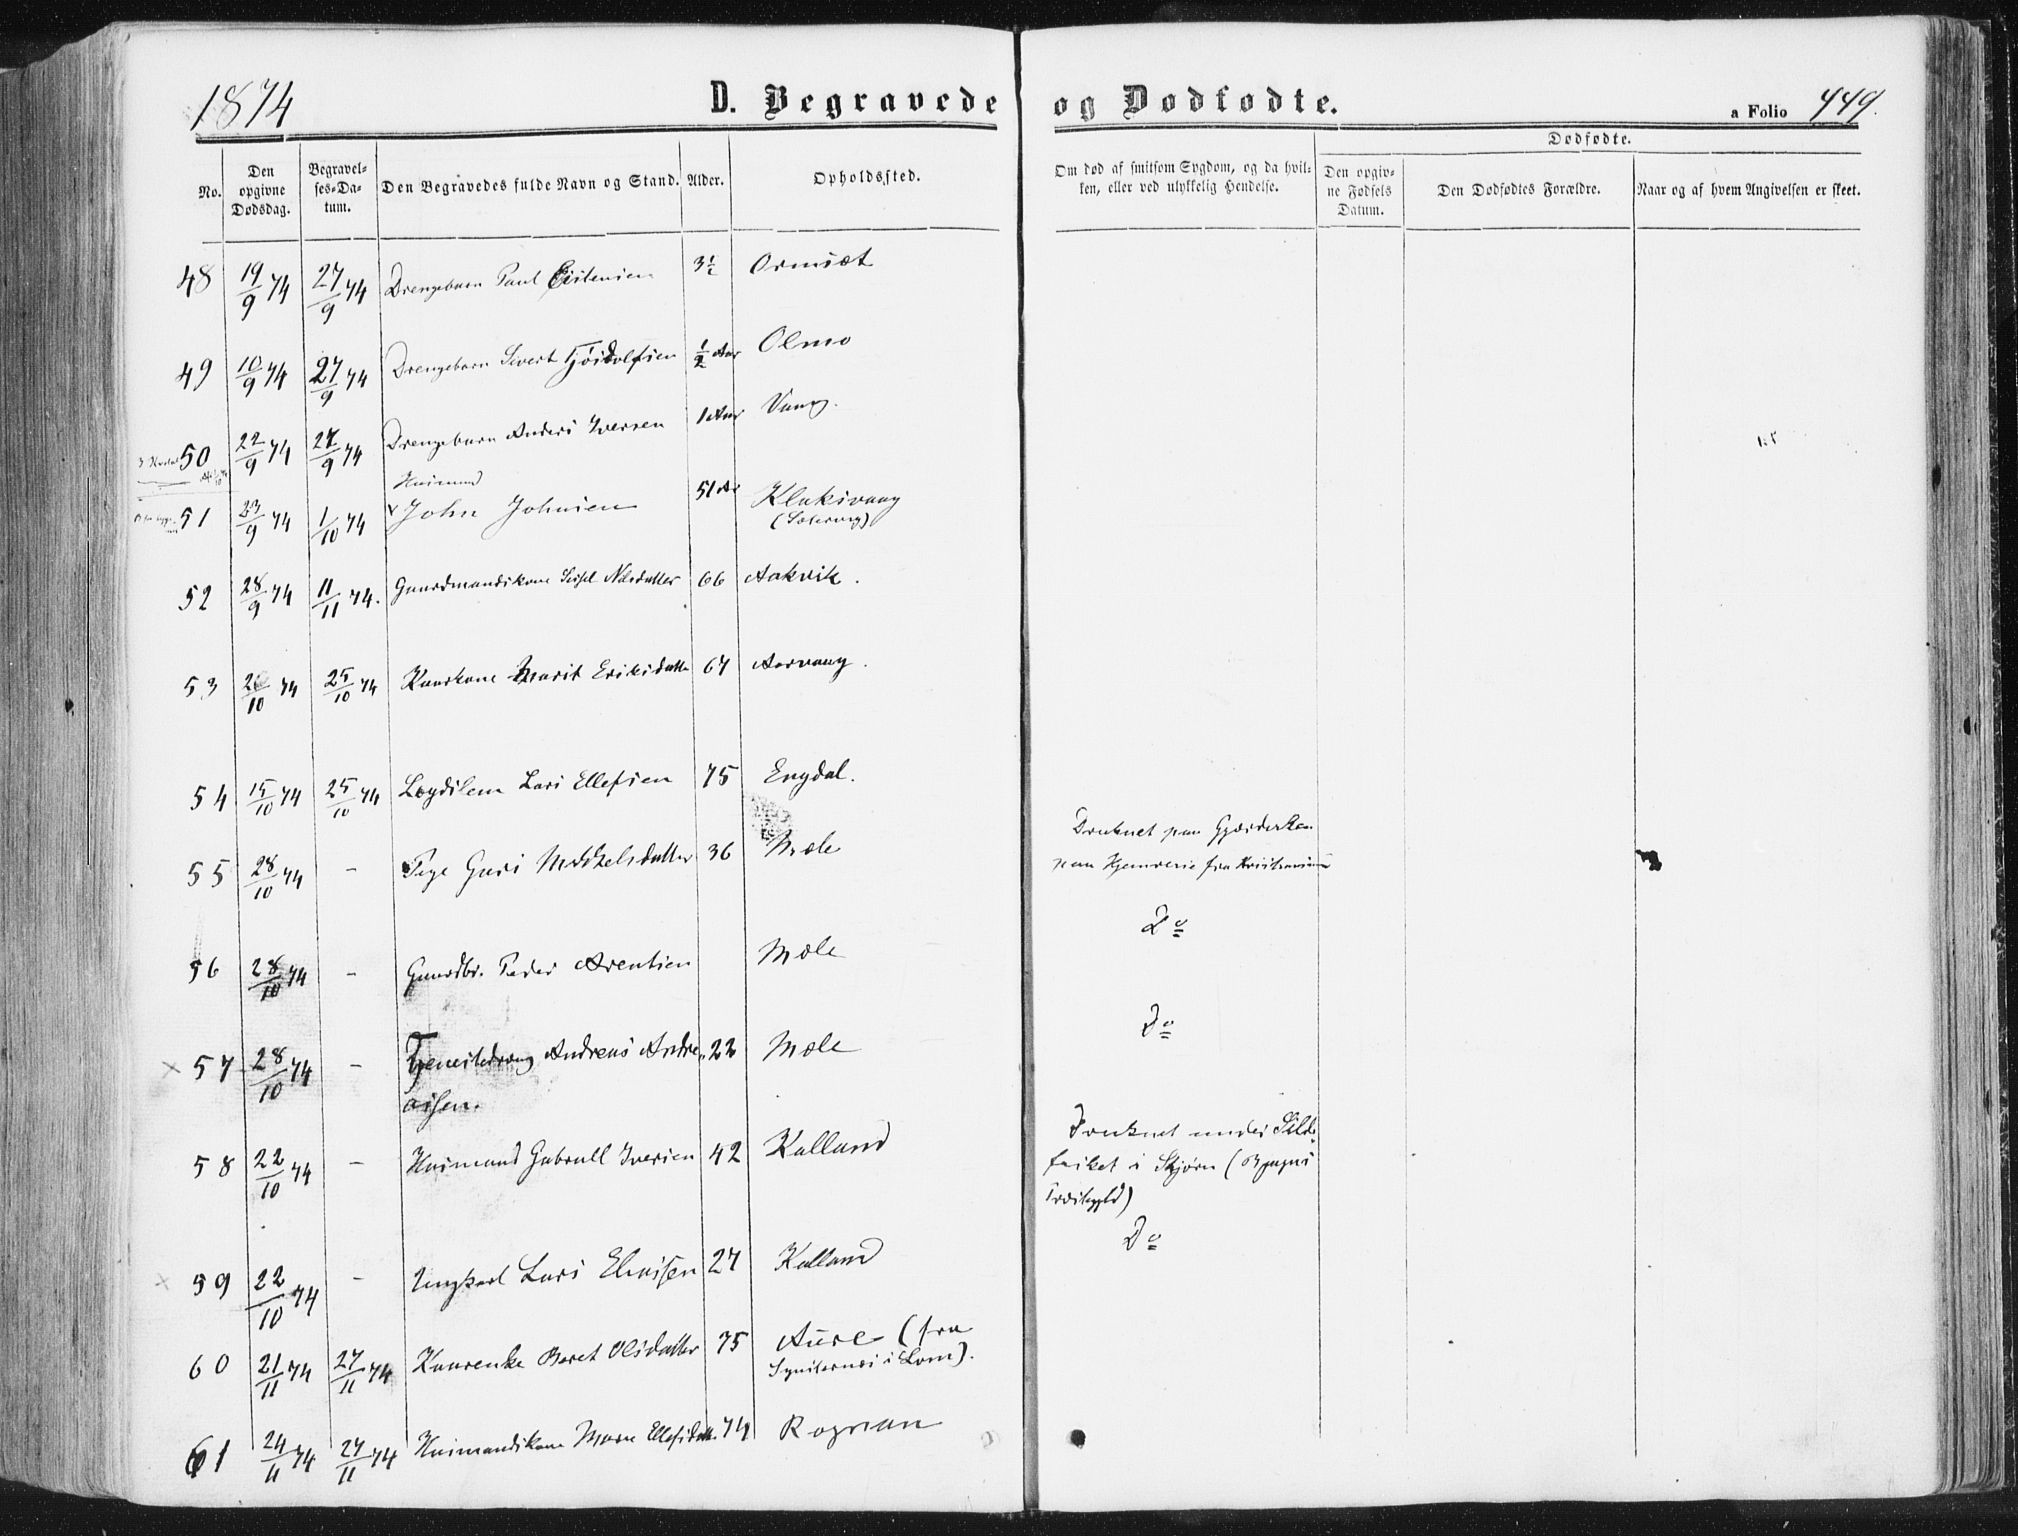 1874
D. Begravede og Dødfødte.
a Folio 449.
No.
Den opgivne Dødsdag.
Begravelses-Datum.
Den Begravedes fulde Navn og Stand.
Alder.
Opholdssted.
Om død af smitsom Sygdom, og da hvilken, eller ved ulykkelig Hendelse.
Dødfødte.
Den opgivne Fødsels Datum.
Den Dødfødtes Forældre.
Naar og af hvem Angivelsen er skeet.
48 19/9 74 27/9 74 Drengebarn Paul 3½ Ormsæt
49 10/9 74 27/9 74 Drengebarn Sivert ½ Aar Olmo
50 22/9 74 27/9 74 Drengebarn Anders Iversen 1 Aar Vaag.
Husmand
51 23/9 74 1/10 74 John Johnsen 51 Aar Klaksvaag
52 28/9 74 11/11 74. Gaardmandskone Sissel Nilsdatter 66 Aakvik.
53 10 74 25/10 74 Kaarkone Marit Eriksdatter 67 Aarvaag.
54 15/10 74 25/10 74 Lægdslem Lars Ellefsen 75 Engdal.
55 28/10 74 - Pige Guri Mikkelsdatter 36 Mæle Druknet paa
paa Hjemreise fra Kristiansund
56 28/10 74 - Gaardbr. Peder Arentsen Mæle Do
57 28/10 74 - Tjenestedreng Andreas Andreasen. 22 Mæle Do
58 22/10 74 - Husmand Gabriell Iversen 42 Kalland Druknet under Sildefisket i Skjørn (Bjugns
Præstegjeld)
59 22/10 74 - Ungkarl Lars Eliasen 27 Kalland Do
60 21/11 74 27/11 74 Kaarenke Beret Olsdatter 75 Aure (fra
i Lom).
61 24/11 74 27/11 74 Husmandskone Maren Ellefsdatt. 74 Rognan